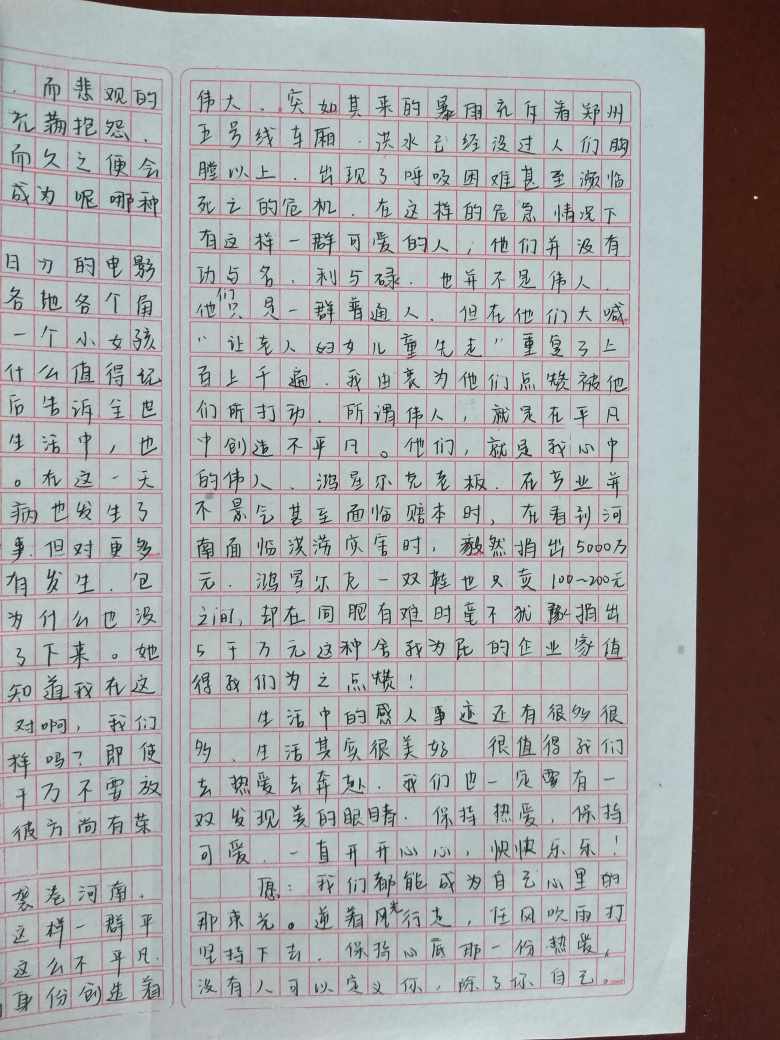 ，而悲观的
充满抱怨，
而久之便会
成为呢哪种
日为的电影
各地各个角
一个小女孩
什么值得纪
后告诉全世
生活中，也
。在这一天
病也发生了
事，但对更多
有发生，包
为什么也没
了下来。她
知道我在这
对啊，我们
样吗？即使
千万不要放
彼方尚有荣
袭卷河南，
这样一群平
这么不平凡
身份创造着
伟大，突如其来的暴雨充斥着郑州
五号线车厢，洪水已经没过人们胸
膛以上，出现了呼吸困难甚至濒临
死亡的危机，在这样的危急情况下
有这样一群可爱的人，他们并没有
功与名，利与碌，也并不是伟人，
他们只是一群普通人，但在他们大喊
“让老人妇女儿童先走”重复了上
百上千遍，我由衷为他们点赞被他
们所打动，所谓伟人，就是在平凡
中创造不平凡。他们，就是我心中
的伟人，鸿星尔克老板，在产业并
不景气甚至面临赔本时，在看到河
南面临洪涝灾害时，毅然捐出5000万
元，鸿星尔克一双鞋也只卖100~200元
之间，却在同胞有难时毫不犹豫捐出
5千万元这种舍我为民的企业家值
得我们为之点赞！
生活中的感人事迹还有很多很
多，生活其实很美好 很值得我们
去热爱去奔赴，我们也一定要有一
双发现美的眼睛，保持热爱，保持
可爱，一直开开心心，快快乐乐！
愿：我们都能成为自己心里的
那束光。逆着风光行走，任风吹雨打
坚持下去，保持心底那一份热爱，
没有人可以定义你，除了你自己。